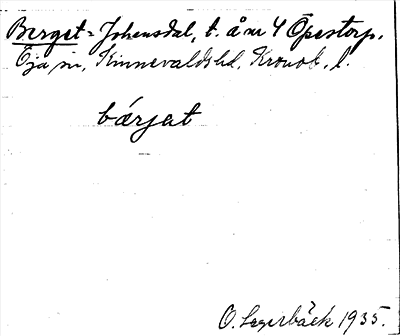 Berget = Johansdal, t. å nr 4 Öpestorp,
Öja sn, Kinnevalds hd, Kronob. l.
bærjat
O. Lagerbäck 1935.